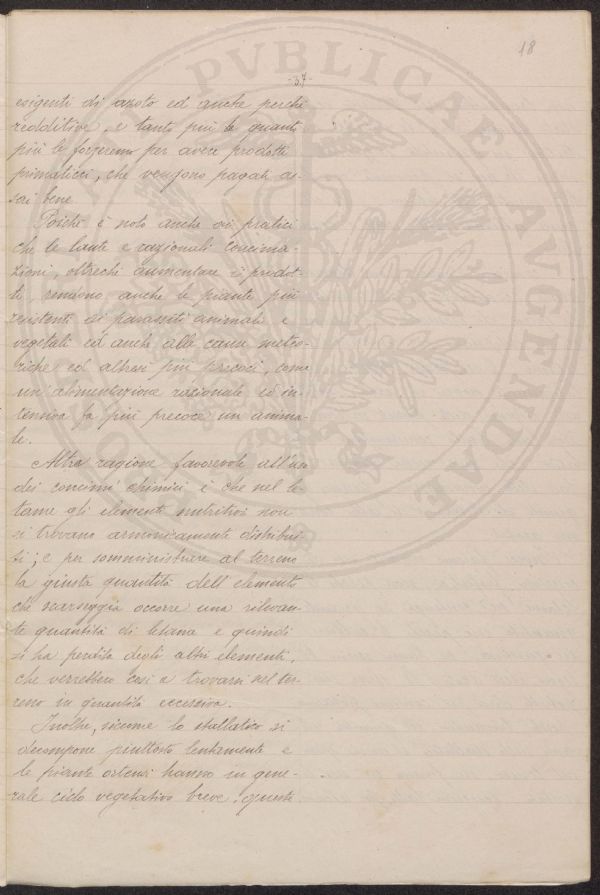 18
-37-
esigenti di azoto ed anche perchè
redditive, e tanto più le quanto
più le forzeremo per avere prodotti
primaticci, che vengono pagati as-
sai bene
Poichè è noto anche ai pratici
che le laute e razionali concima-
zioni, oltrechè aumentare i prodot-
ti, rendono anche le piante più
resistenti ai parassiti animali e
vegetali ed anche alle cause meteo-
riche ed altresì più precoci, come
un'alimentazione razionale ed in-
tensiva fa più precoce un anima-
le.
Altra ragione favorevole all'uso
dei concimi chimici è che nel le-
tame gli elementi nutritivi non
si trovano armonicamente distribui-
ti; e per somministrare al terreno
la giusta quantità dell'elemento
che scarseggia occorre una rilevan-
te quantità di letame e quindi
si ha perdita degli altri elementi,
che verrebbero così a trovarsi nel ter-
reno in quantità eccessiva.
Inoltre, siccome lo stallatico si
decompone piuttosto lentamente e
le piante ortensi hanno in gene-
rale ciclo vegetativo breve, queste
PVBLICAE
AVGENDAE